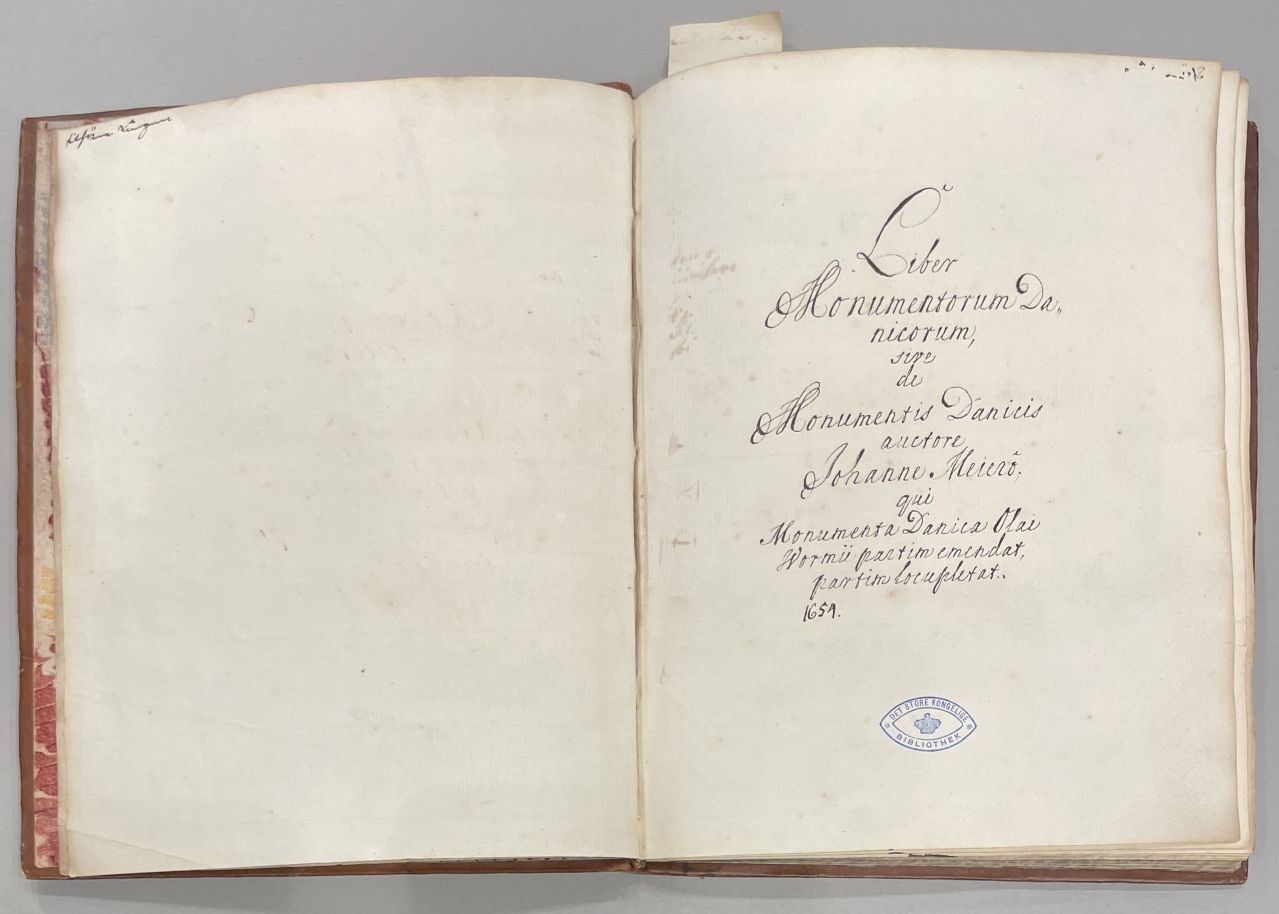 Liber
Monumentorum Da„
nicorum,
sive
de
Monumentis Danicis
auctore
Johanne Meierô;
qui
Monumenta Danica Olai
Wormii partim emendat,
partim locupletat..
1654.
DET STORE KONGELIGE
BIBLIOTHEK